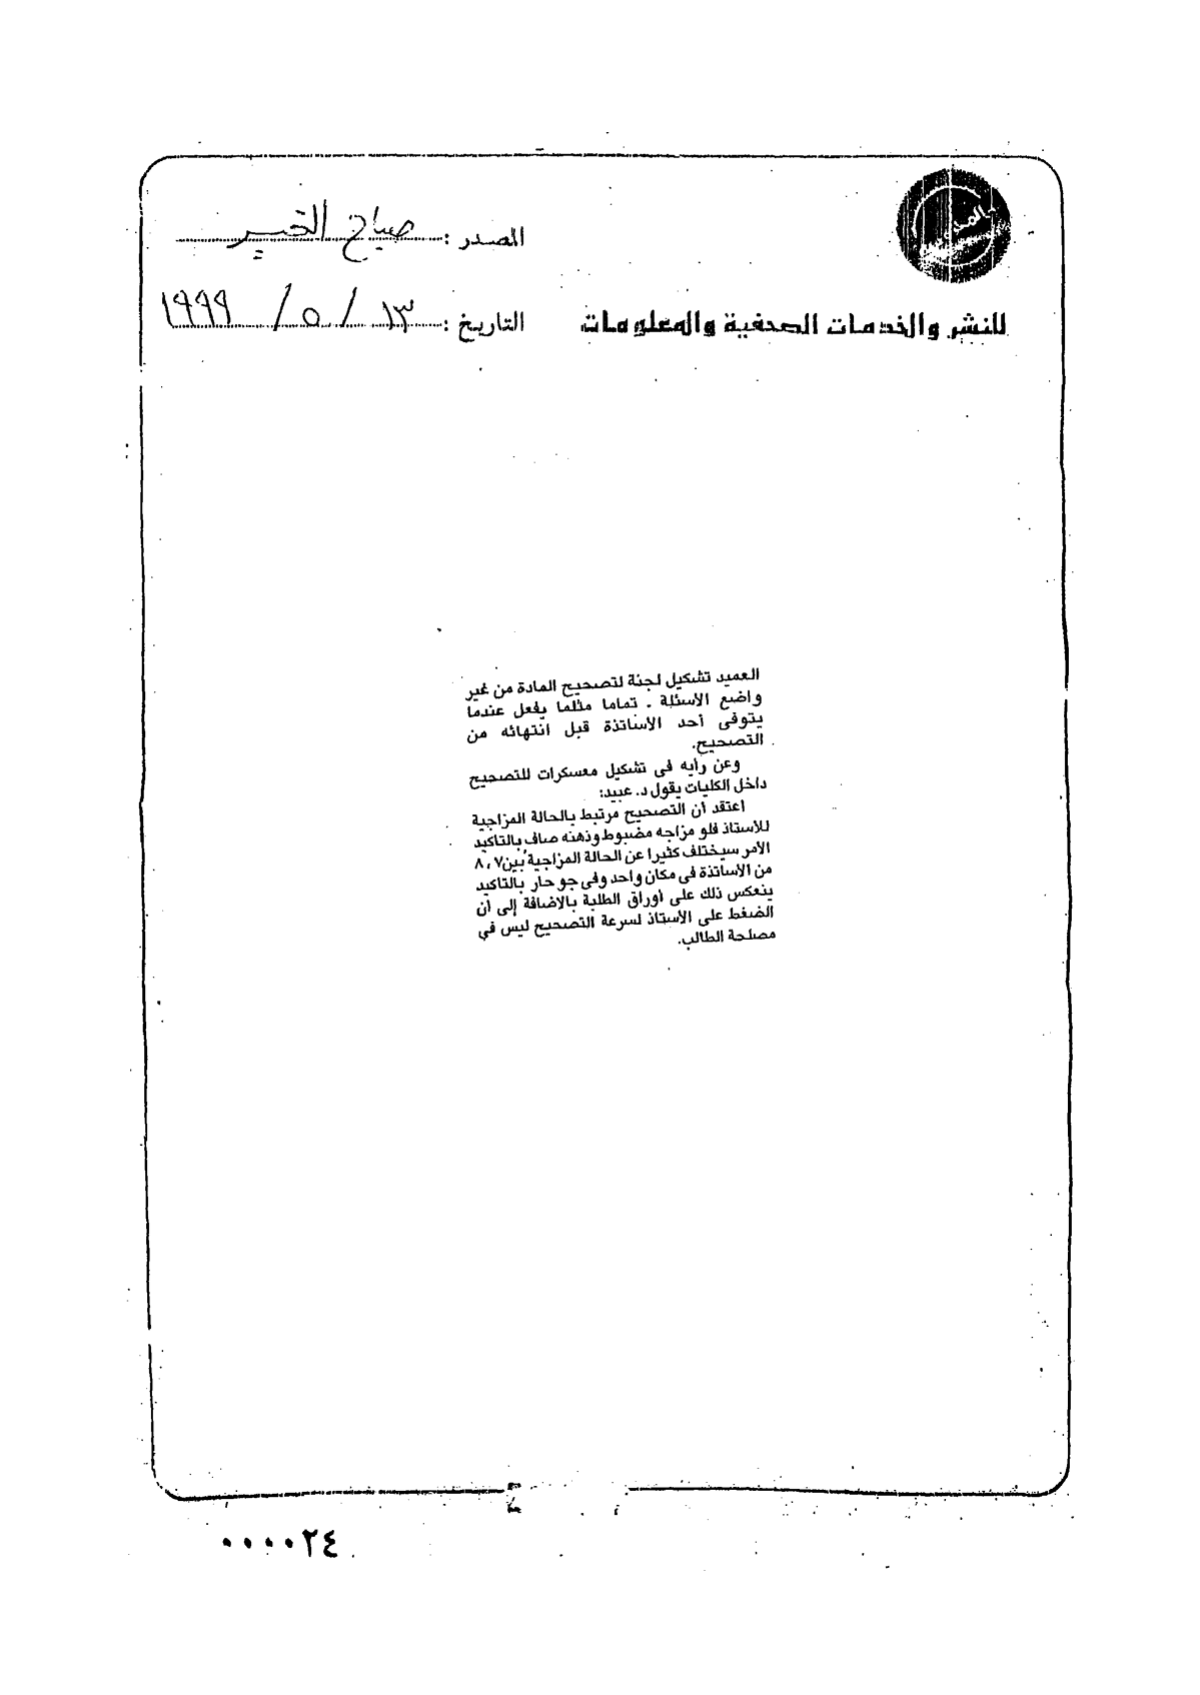 المصدر : صباح الخير
للنشر والخدمات الصحفية والمعلومات
التاريخ : ١٣ / ٥ / ١٩٩٩
العميد تشكيل لجنة لتصحيح المادة من غير
واضع الأسئلة . تماما مثلما يفعل عندما
يتوفى أحد الأساتذة قبل انتهائه من
التصحيح.
وعن رأيه فى تشكيل معسكرات للتصحيح
داخل الكليات يقول د. عبيد:
اعتقد أن التصحيح مرتبط بالحالة المزاجية
للأستاذ فلو مزاجه مضبوط وذهنه صاف بالتاكيد
الأمر سيختلف كثيرا عن الحالة المزاجية بين ٧ ، ٨
من الأساتذة فى مكان واحد وفى جو حار بالتاكيد
ينعكس ذلك على أوراق الطلبة بالاضافة إلى أن
الضغط على الأستاذ لسرعة التصحيح ليس في
مصلحة الطالب.
٠٠٠٠٢٤